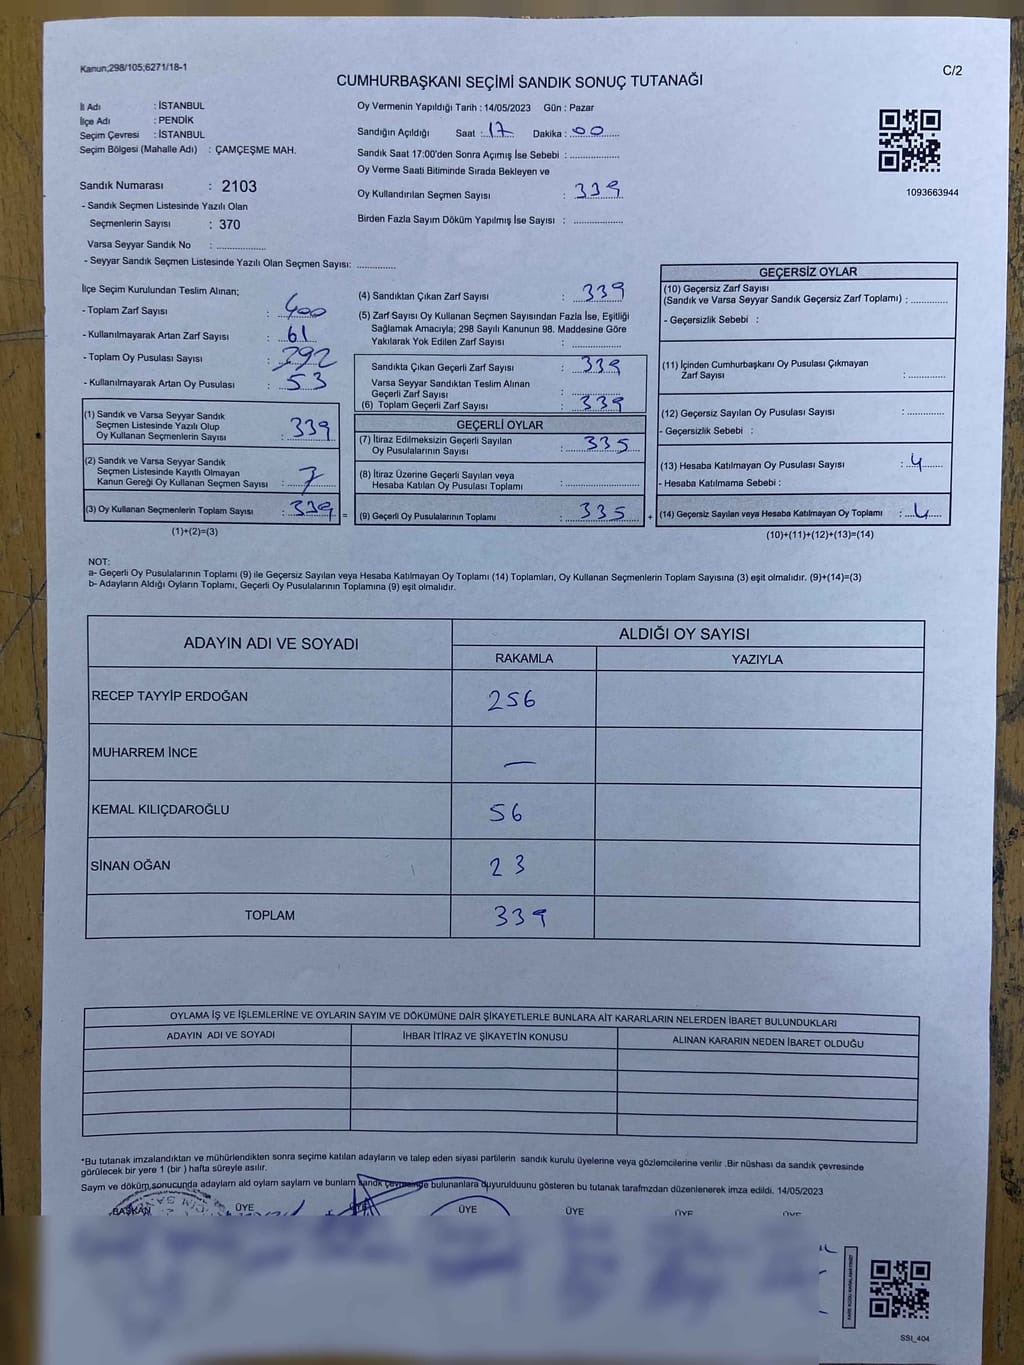 Kanun;298/105;6271/18-1
C/2
CUMHURBAŞKANI SEÇİMİ SANDIK SONUÇ TUTANAĞI
İl Adı : İSTANBUL
İlçe Adı : PENDİK
Seçim Çevresi : İSTANBUL
Seçim Bölgesi (Mahalle Adı) : ÇAMÇEŞME MAH.
Sandık Numarası : 2103
- Sandık Seçmen Listesinde Yazılı Olan
Seçmenlerin Sayısı : 370
Varsa Seyyar Sandık No : ...............
- Seyyar Sandık Seçmen Listesinde Yazılı Olan Seçmen Sayısı: ............
Oy Vermenin Yapıldığı Tarih : 14/05/2023 Gün : Pazar
Sandığın Açıldığı Saat : 17 Dakika : 00
Sandık Saat 17:00'den Sonra Açımış İse Sebebi : ...............
Oy Verme Saati Bitiminde Sırada Bekleyen ve
Oy Kullandırılan Seçmen Sayısı : 339
Birden Fazla Sayım Döküm Yapılmış İse Sayısı : ...............
1093663944
İlçe Seçim Kurulundan Teslim Alınan;
- Toplam Zarf Sayısı : 400
- Kullanılmayarak Artan Zarf Sayısı : 61
- Toplam Oy Pusulası Sayısı : 392
- Kullanılmayarak Artan Oy Pusulası : 53
(1) Sandık ve Varsa Seyyar Sandık
Seçmen Listesinde Yazılı Olup
Oy Kullanan Seçmenlerin Sayısı : 339
(2) Sandık ve Varsa Seyyar Sandık
Seçmen Listesinde Kayıtlı Olmayan
Kanun Gereği Oy Kullanan Seçmen Sayısı :
(3) Oy Kullanan Seçmenlerin Toplam Sayısı : 339 =
(1)+(2)=(3)
(4) Sandıktan Çıkan Zarf Sayısı : 339
(5) Zarf Sayısı Oy Kullanan Seçmen Sayısından Fazla İse, Eşitliği
Sağlamak Amacıyla; 298 Sayılı Kanunun 98. Maddesine Göre
Yakılarak Yok Edilen Zarf Sayısı : ...............
Sandıkta Çıkan Geçerli Zarf Sayısı : 339
Varsa Seyyar Sandıktan Teslim Alınan
Geçerli Zarf Sayısı : ...............
(6) Toplam Geçerli Zarf Sayısı : 339
GEÇERLİ OYLAR
(7) İtiraz Edilmeksizin Geçerli Sayılan
Oy Pusulalarının Sayısı : 335
(8) İtiraz Üzerine Geçerli Sayılan veya
Hesaba Katılan Oy Pusulası Toplamı : ...............
(9) Geçerli Oy Pusulalarının Toplamı : 335 +
GEÇERSİZ OYLAR
(10) Geçersiz Zarf Sayısı
(Sandık ve Varsa Seyyar Sandık Geçersiz Zarf Toplamı) : ............
- Geçersizlik Sebebi :
(11) İçinden Cumhurbaşkanı Oy Pusulası Çıkmayan
Zarf Sayısı : ............
(12) Geçersiz Sayılan Oy Pusulası Sayısı : ............
- Geçersizlik Sebebi :
(13) Hesaba Katılmayan Oy Pusulası Sayısı : 4
- Hesaba Katılmama Sebebi :
(14) Geçersiz Sayılan veya Hesaba Katılmayan Oy Toplamı : 4
(10)+(11)+(12)+(13)=(14)
NOT:
a- Geçerli Oy Pusulalarının Toplamı (9) ile Geçersiz Sayılan veya Hesaba Katılmayan Oy Toplamı (14) Toplamları, Oy Kullanan Seçmenlerin Toplam Sayısına (3) eşit olmalıdır. (9)+(14)=(3)
b- Adayların Aldığı Oyların Toplamı, Geçerli Oy Pusulalarının Toplamına (9) eşit olmalıdır.
ADAYIN ADI VE SOYADI
ALDIĞI OY SAYISI
RAKAMLA YAZIYLA
RECEP TAYYİP ERDOĞAN 256
MUHARREM İNCE —
KEMAL KILIÇDAROĞLU 56
SİNAN OĞAN 23
TOPLAM 339
OYLAMA İŞ VE İŞLEMLERİNE VE OYLARIN SAYIM VE DÖKÜMÜNE DAİR ŞİKAYETLERLE BUNLARA AİT KARARLARIN NELERDEN İBARET BULUNDUKLARI
ADAYIN ADI VE SOYADI İHBAR İTİRAZ VE ŞİKAYETİN KONUSU ALINAN KARARIN NEDEN İBARET OLDUĞU
*Bu tutanak imzalandıktan ve mühürlendikten sonra seçime katılan adayların ve talep eden siyasi partilerin sandık kurulu üyelerine veya gözlemcilerine verilir .Bir nüshası da sandık çevresinde
görülecek bir yere 1 (bir ) hafta süreyle asılır.
Sayım ve döküm sonucunda adayların ald oyların sayların ve bunların sandık çevresinde bulunanlara duyurulduunu gösteren bu tutanak tarafmzdan düzenlenerek imza edildi. 14/05/2023
BAŞKAN ÜYE ÜYE ÜYE ÜYE ÜYE ÜYE
SSI_404